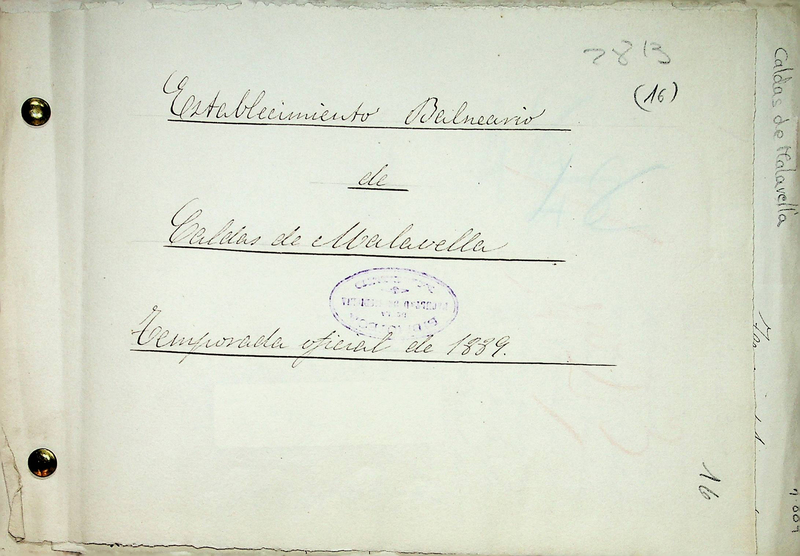 2813
(16)
Establecimiento Balneario
de
Caldas de Malavella
Temporada oficial de 1889.
16
Caldas de Malavella